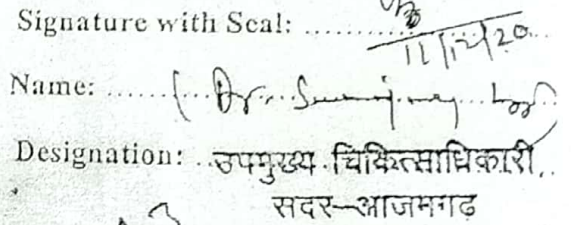 Signature with Seal: ........
11/12/20
Name: ...... ( Dr.
Designation: ..उपमुख्य चिकित्साधिकारी..
सदर–आजमगढ़